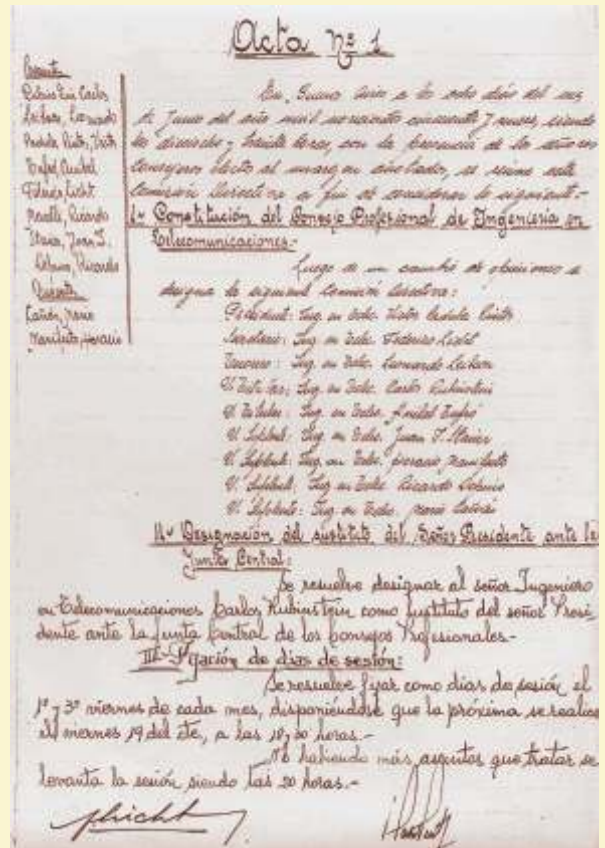 Acta nº 1
Presente
Leikan, Leonardo
Federico Licht
Ricardo
Juan J.
Ricardo
Cañón, Mario
Manifesto, Horacio
En Buenos Aires a los ocho días del mes
de Junio del año mil novecientos cincuenta y nueve, siendo
las dieciocho y treinta horas, con la presencia de los señores
consejeros electos al margen anotados, se reúne esta
comisión directiva a fin de considerar lo siguiente:-
I- Constitución del Consejo Profesional de Ingeniería en
Telecomunicaciones.-
Luego de un cambio de opiniones se
designa la siguiente Comisión directiva:
Presidente: Ing. en Telec. Victor
Secretario: Ing. en Telec. Federico Licht
Tesorero: Ing. en Telec. Leonardo Leikan
V. Titular: Ing. en Telec. Carlos Rubinstein
V. Titular: Ing. en Telec. Anibal
V. Suplente: Ing. en Telec. Juan J.
V. Suplente: Ing. en Telec. Horacio Manifesto
V. Suplente: Ing. en Telec. Ricardo
V. Suplente: Ing. en Telec. Mario
II- Designación del sustituto del Señor Presidente ante la
Junta Central:
Se resuelve designar al señor Ingeniero
en Telecomunicaciones Carlos Rubinstein como sustituto del señor Presi-
dente ante la Junta Central de los Consejos Profesionales.-
III- Fijación de días de sesión:
Se resuelve fijar como días de sesión el
1º y 3º viernes de cada mes, disponiéndose que la próxima se realice
el viernes 19 del cte, a las 18,30 horas.-
No habiendo más asuntos que tratar se
levanta la sesión siendo las 20 horas.-